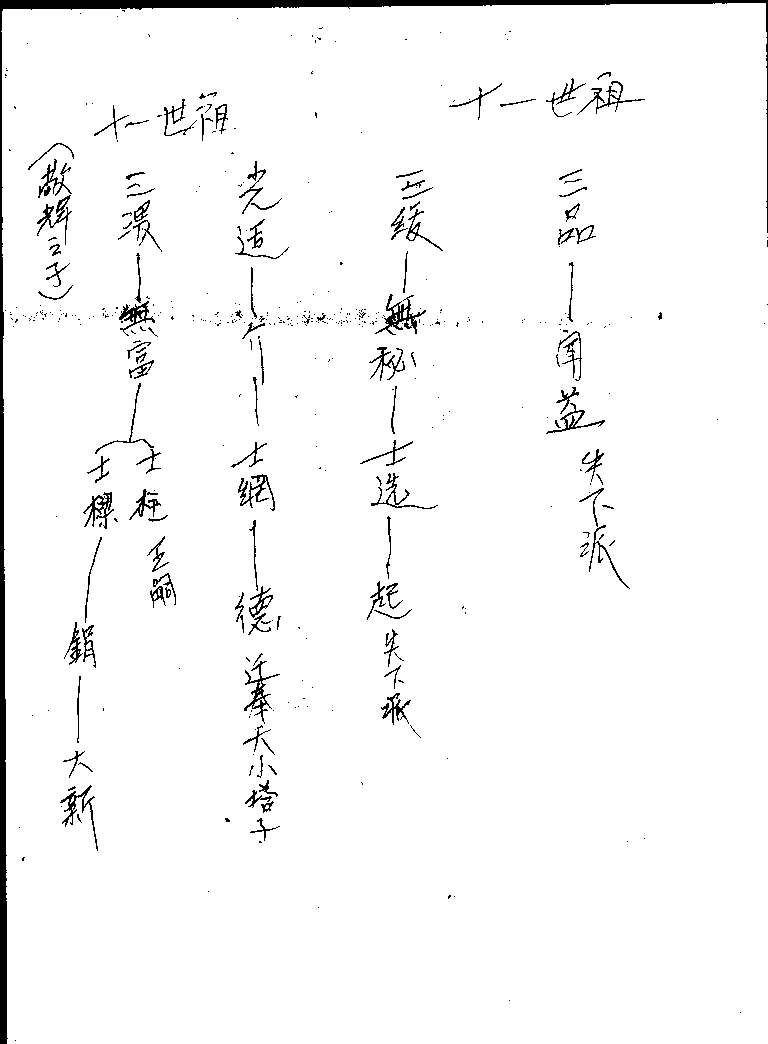 十一世祖
三品—守益 失下派
三绥—無秘—士选—起 失下派
十一世祖
光适—行—士網—德 迁奉天小塔子
三渨—無富—士柱 乏嗣
士標—銷—大新
(敬輝之子)